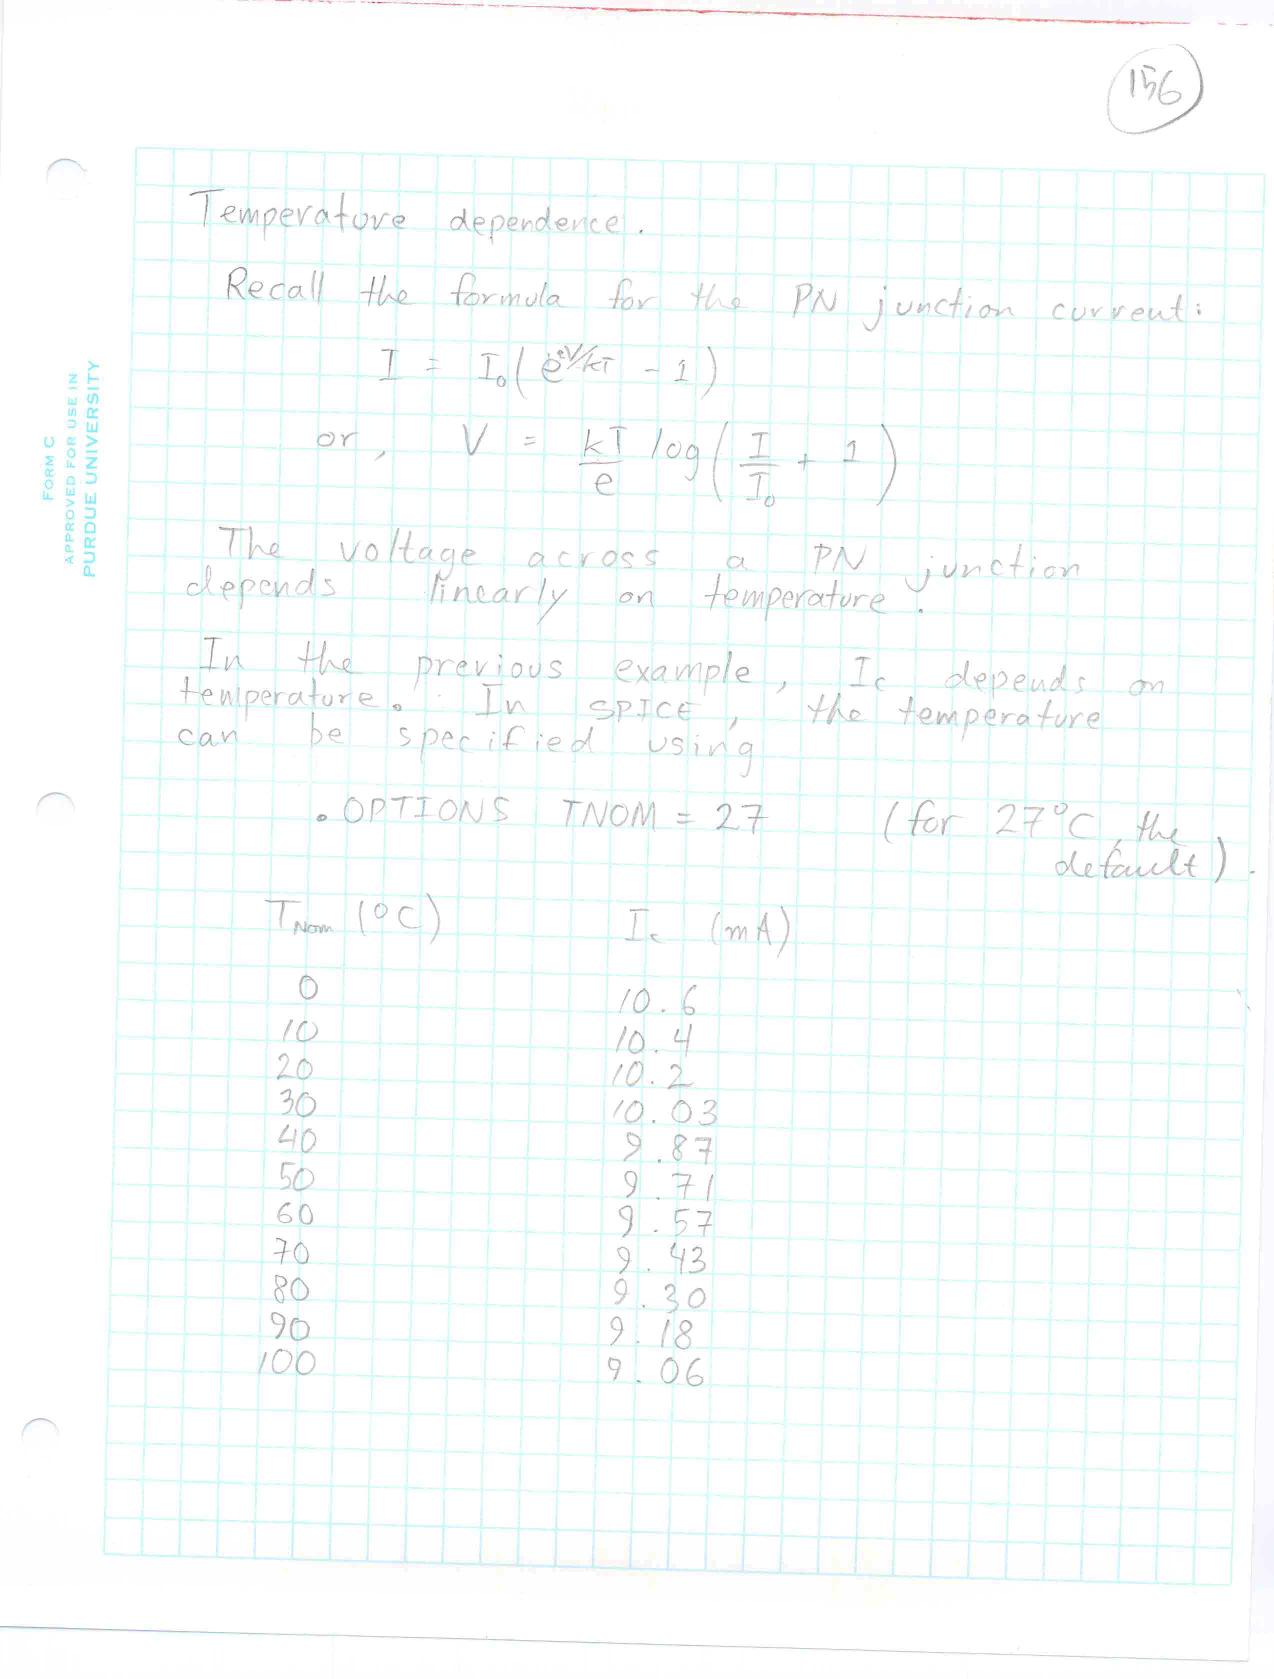 156
FORM C
APPROVED FOR USE IN
PURDUE UNIVERSITY
Temperature dependence.
Recall the formula for the PN junction current:
I = I₀(e^{eV/kT} - 1)
or, V = kT/e log(I/I₀ + 1)
The voltage across a PN junction
depends linearly on temperature.
In the previous example, Ic depends on
temperature. In SPICE, the temperature
can be specified using
.OPTIONS TNOM = 27 (for 27°C, the
default).
TNOM (°C) Ic (mA)
0 10.6
10 10.4
20 10.2
30 10.03
40 9.87
50 9.71
60 9.57
70 9.43
80 9.30
90 9.18
100 9.06